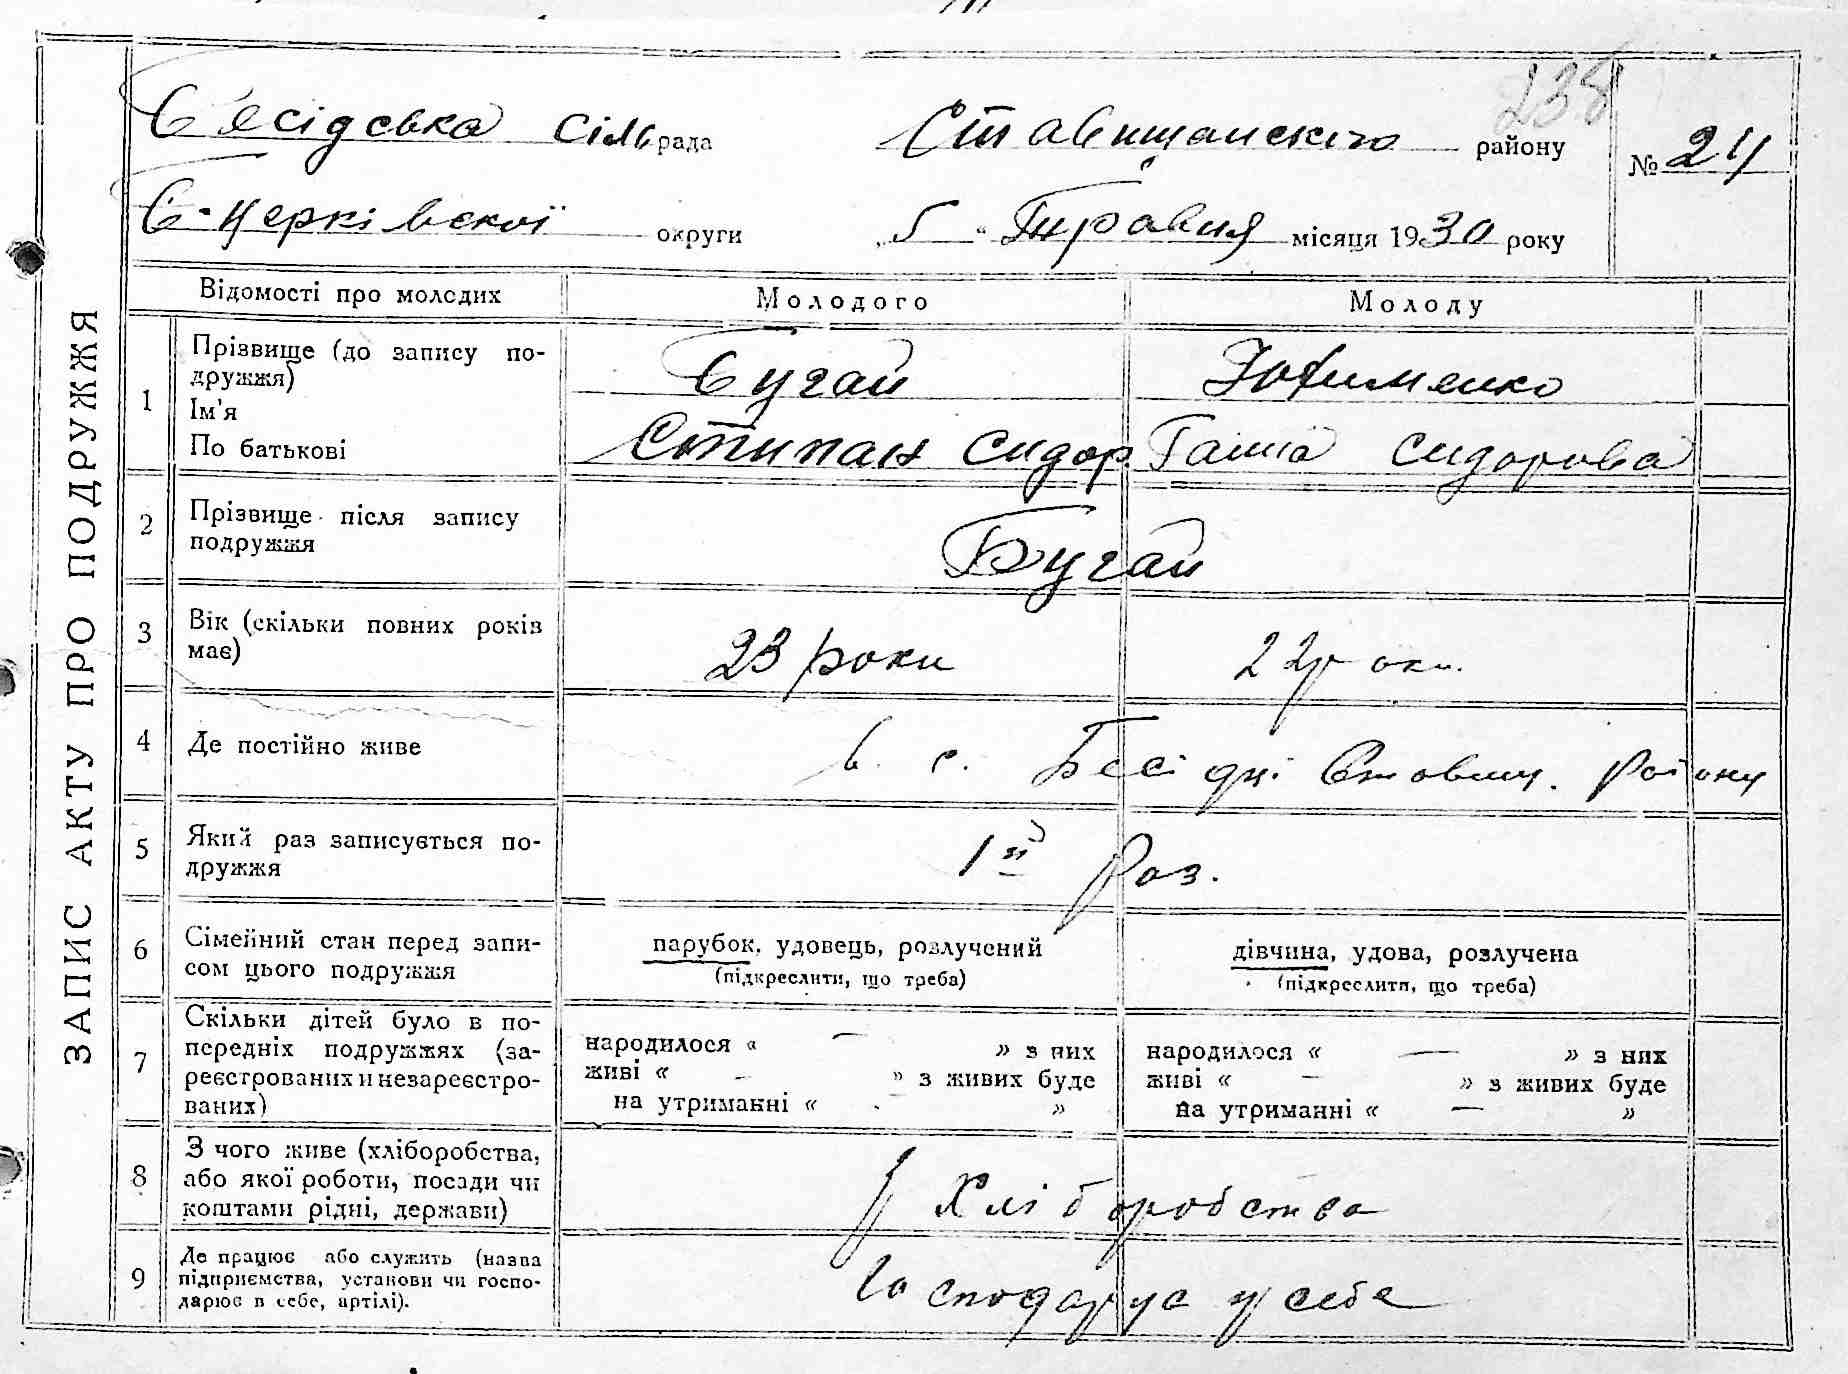 238
Бесідська сільрада Ставищанскіго району № 24
Б-Церківскої округи „5“ Травня місяця 1930 року
ЗАПИС АКТУ ПРО ПОДРУЖЖЯ
Відомості про молодих Молодого Молоду
1 Прізвище (до запису по-
дружжя) Бугай Юхименко
Ім'я
По батькові Стипан Сидор. Ганна Сидорова
2 Прізвище після запису
подружжя Бугай
3 Вік (скільки повних років
має) 23 роки 22 роки.
4 Де постійно живе в. с. Бесідці Ставищ. району
5 Який раз записується по-
дружжя 1й раз.
6 Сімейний стан перед запи-
сом цього подружжя
парубок, удовець, розлучений
(підкреслити, що треба)
дівчина, удова, розлучена
(підкреслити, що треба)
7 Скільки дітей було в по-
передніх подружжях (за-
реєстрованих и незареєстро-
ваних)
народилося « — » з них
живі « — » з живих буде
на утриманні « - »
народилося « — » з них
живі « — » з живих буде
на утриманні « — »
8 З чого живе (хліборобства,
або якої роботи, посади чи
коштами рідні, держави)
Хліборобства
9 Де працює або служить (назва
підприємства, установи чи госпо-
дарює в себе, артілі).
Господарує у себе